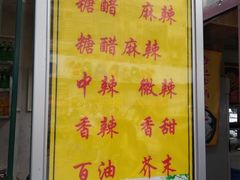 糖醋 麻辣
糖醋麻辣
中辣 微辣
香辣 香甜
百油 芥末